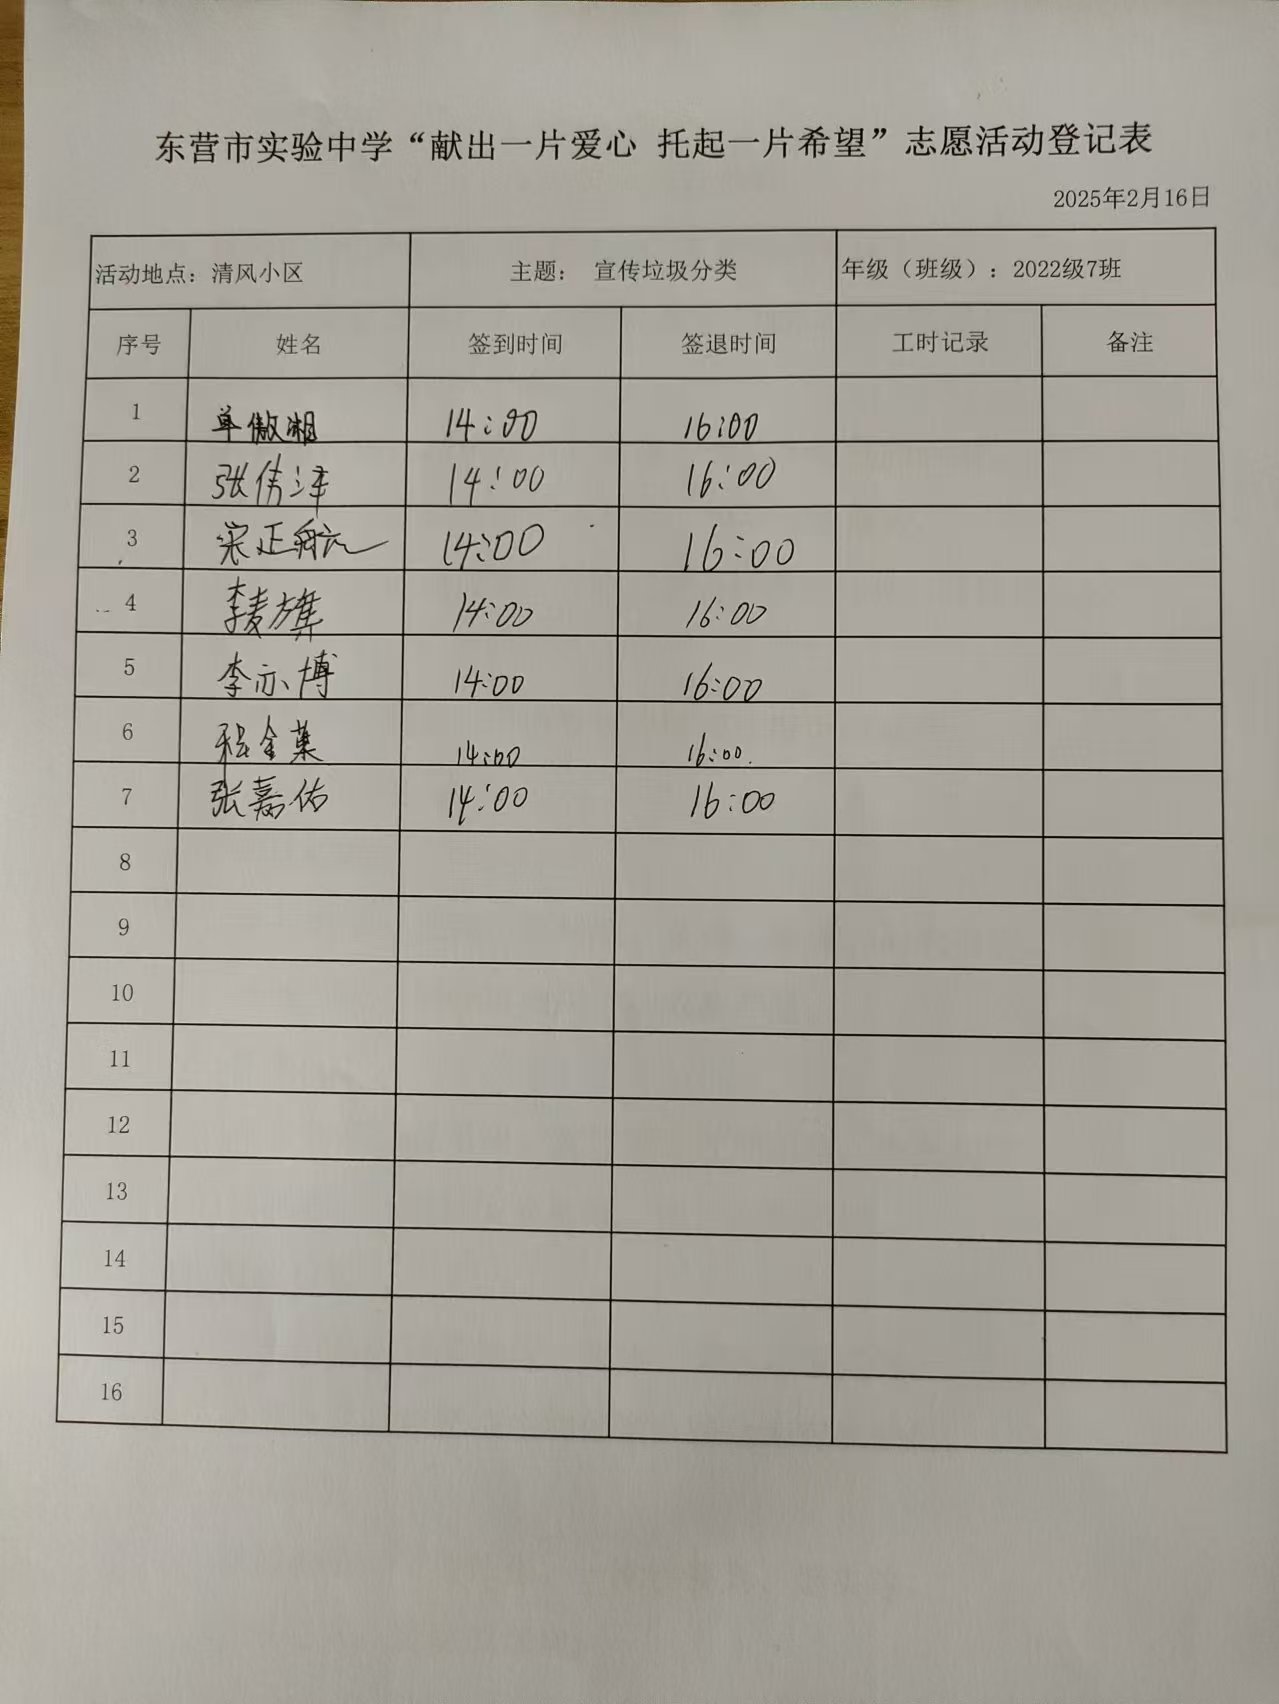 东营市实验中学“献出一片爱心 托起一片希望”志愿活动登记表
2025年2月16日
活动地点：清风小区 主题： 宣传垃圾分类 年级（班级）：2022级7班
序号 姓名 签到时间 签退时间 工时记录 备注
1 单傲湘 14:00 16:00
2 张伟泽 14:00 16:00
3 宋正航 14:00 16:00
4 李麦旗 14:00 16:00
5 李亦博 14:00 16:00
6 程金菓 14:00 16:00
7 张嘉佑 14:00 16:00
8
9
10
11
12
13
14
15
16